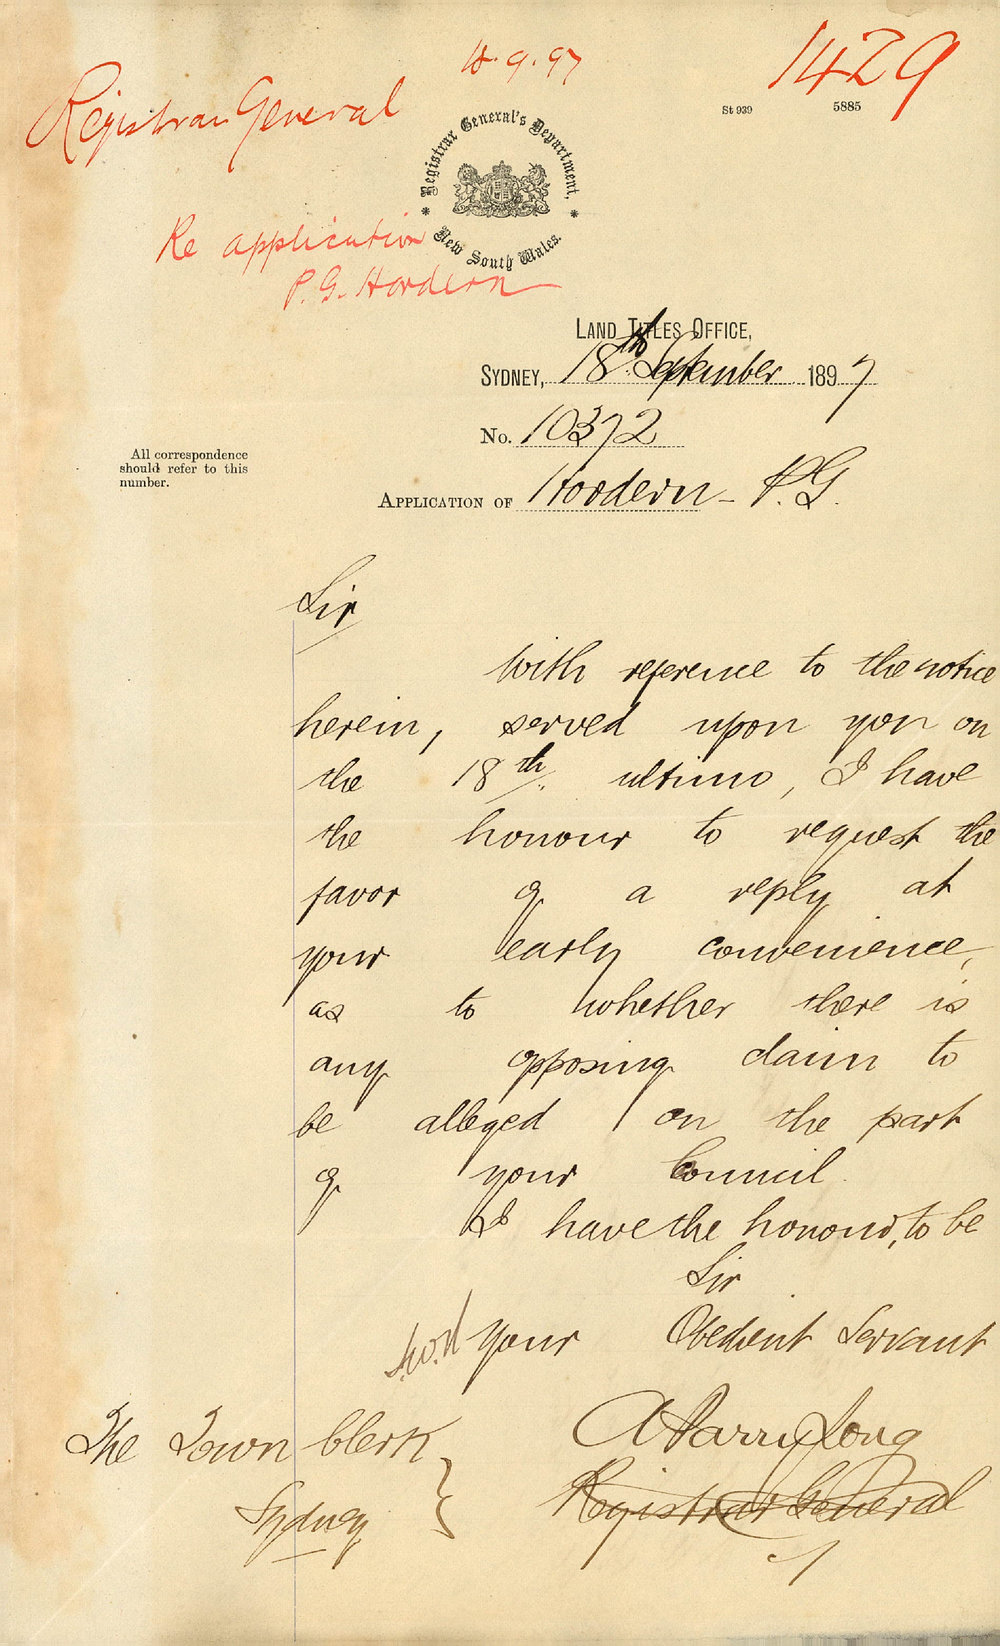 1429
.9.97
Registrar General
St 939
5885
Registrar General's Department,
New South Wales.
Re application
P. G. Hordern
LAND TITLES OFFICE,
SYDNEY, 18th September 1897
No. 10372
All correspondence
should refer to this
number.
APPLICATION OF Hordern - P.G.
Sir
With reference to the notice
herein, served upon you on
the 18th ultimo, I have
the honour to request the
favor of a reply at
your early convenience,
as to whether there is
any opposing claim to
be alleged on the part
of your Council.
I have the honour, to be
Sir
Your Obedient Servant
The Town Clerk
Sydney
A Parry Long
Registrar General